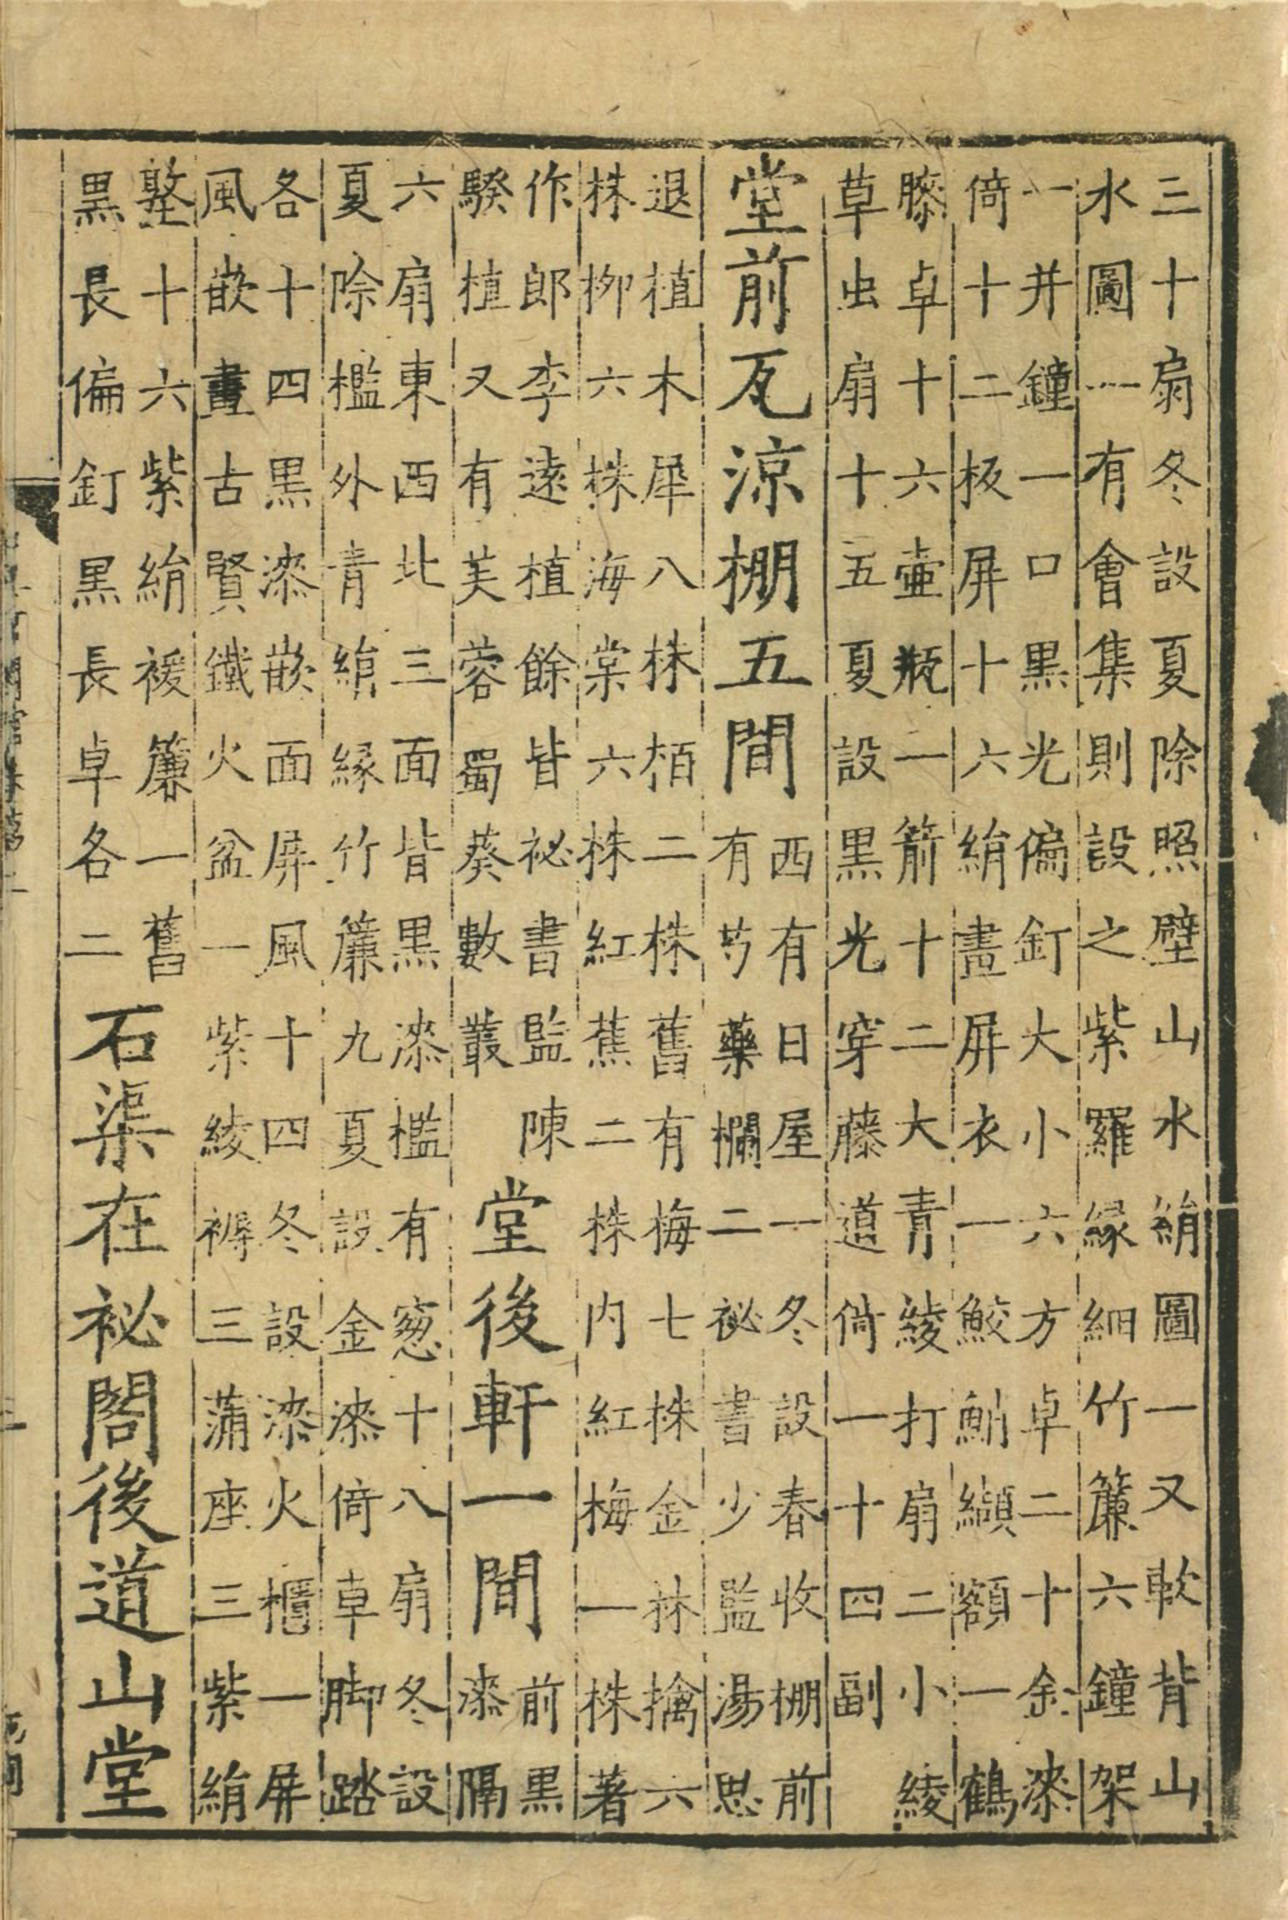 三十扇冬設夏除照壁山水絹圖一又軟背山
水圖一有會集則設之紫羅緣細竹簾六鐘架
一并鐘一口黑光偏釘大小六方卓二十金漆
倚十二板屏十六絹畫屏衣一鮫鮹纈額一鶴
膝卓十六壷瓶一箭十二大青綾打扇二小綾
草虫扇十五夏設黑光穿藤道倚一十四副
堂前瓦涼棚五間
西有日屋一冬設春收棚前
有芍藥欄二祕書少監湯思
退植木犀八株栢二株舊有梅七株金林擒六
株栁六株海棠六株紅蕉二株内紅梅一株著
作郎李遠植餘皆祕書監陳
騤植又有芙蓉蜀葵數叢
堂後軒一間
前黑
漆隔
六扇東西北三面皆黑漆檻有窓十八扇冬設
夏除檻外青絹緣竹簾九夏設金漆倚卓脚踏
各十四黑漆嵌面屏風十四冬設漆火櫃一屏
風嵌畫古賢鐵火盆一紫綾褥三蒲座三紫絹
墪十六紫絹褑簾一舊
黑長偏釘黑長卓各二
石渠在祕閣後道山堂